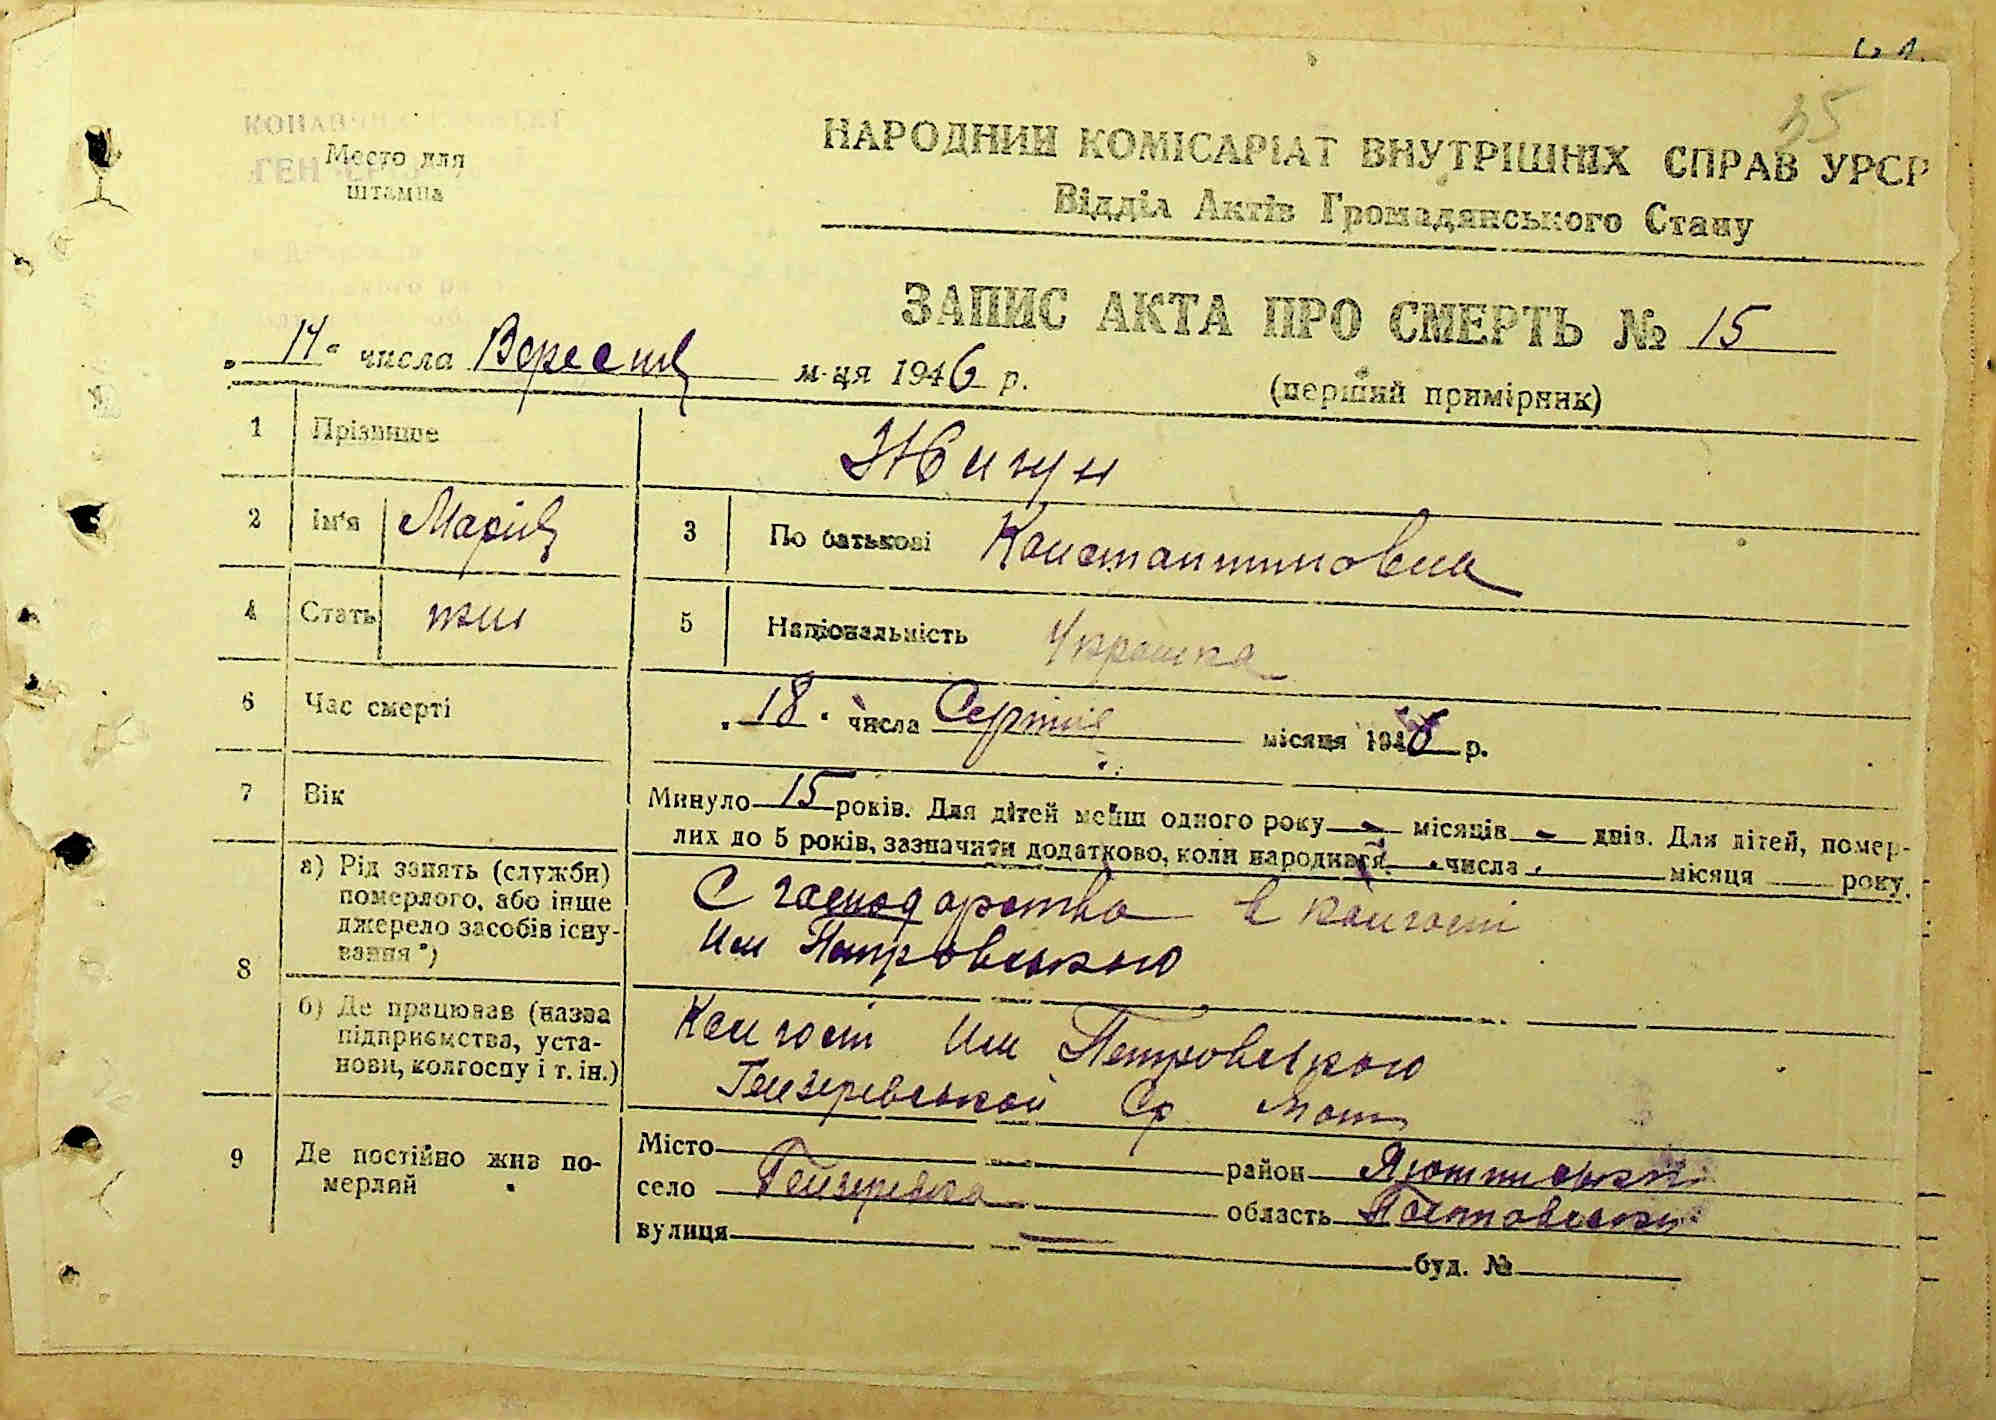 35
Место для
штампа
НАРОДНИЙ КОМІСАРІАТ ВНУТРІШНІХ СПРАВ УРСР
Відділ Актів Громадянського Стану
ЗАПИС АКТА ПРО СМЕРТЬ № 15
(перший примірник)
„ 14 " числа Вересня м-ця 1946 р.
1 Прізвище Жигун
2 Ім'я Марія 3 По батькові Константиновна
4 Стать жін 5 Національність Українка
6 Час смерті „ 18 " числа Серпня місяця 1946 р.
7 Вік Минуло 15 років. Для дітей менш одного року - місяців - днів. Для дітей, помер-
лих до 5 років, зазначити додатково, коли народився " числа " місяця року.
8 а) Рід занять (служби)
померлого, або інше
джерело засобів існу-
вання *)
С господарства в колгоспі
Им Петровського
б) Де працював (назва
підприємства, уста-
нови, колгоспу і т. ін.)
Колгосп Им Петровського
Гензеревской Ср
9 Де постійно жив по-
мерлий
Місто район
село Гензеревка область Полтавська
вулиця буд. №